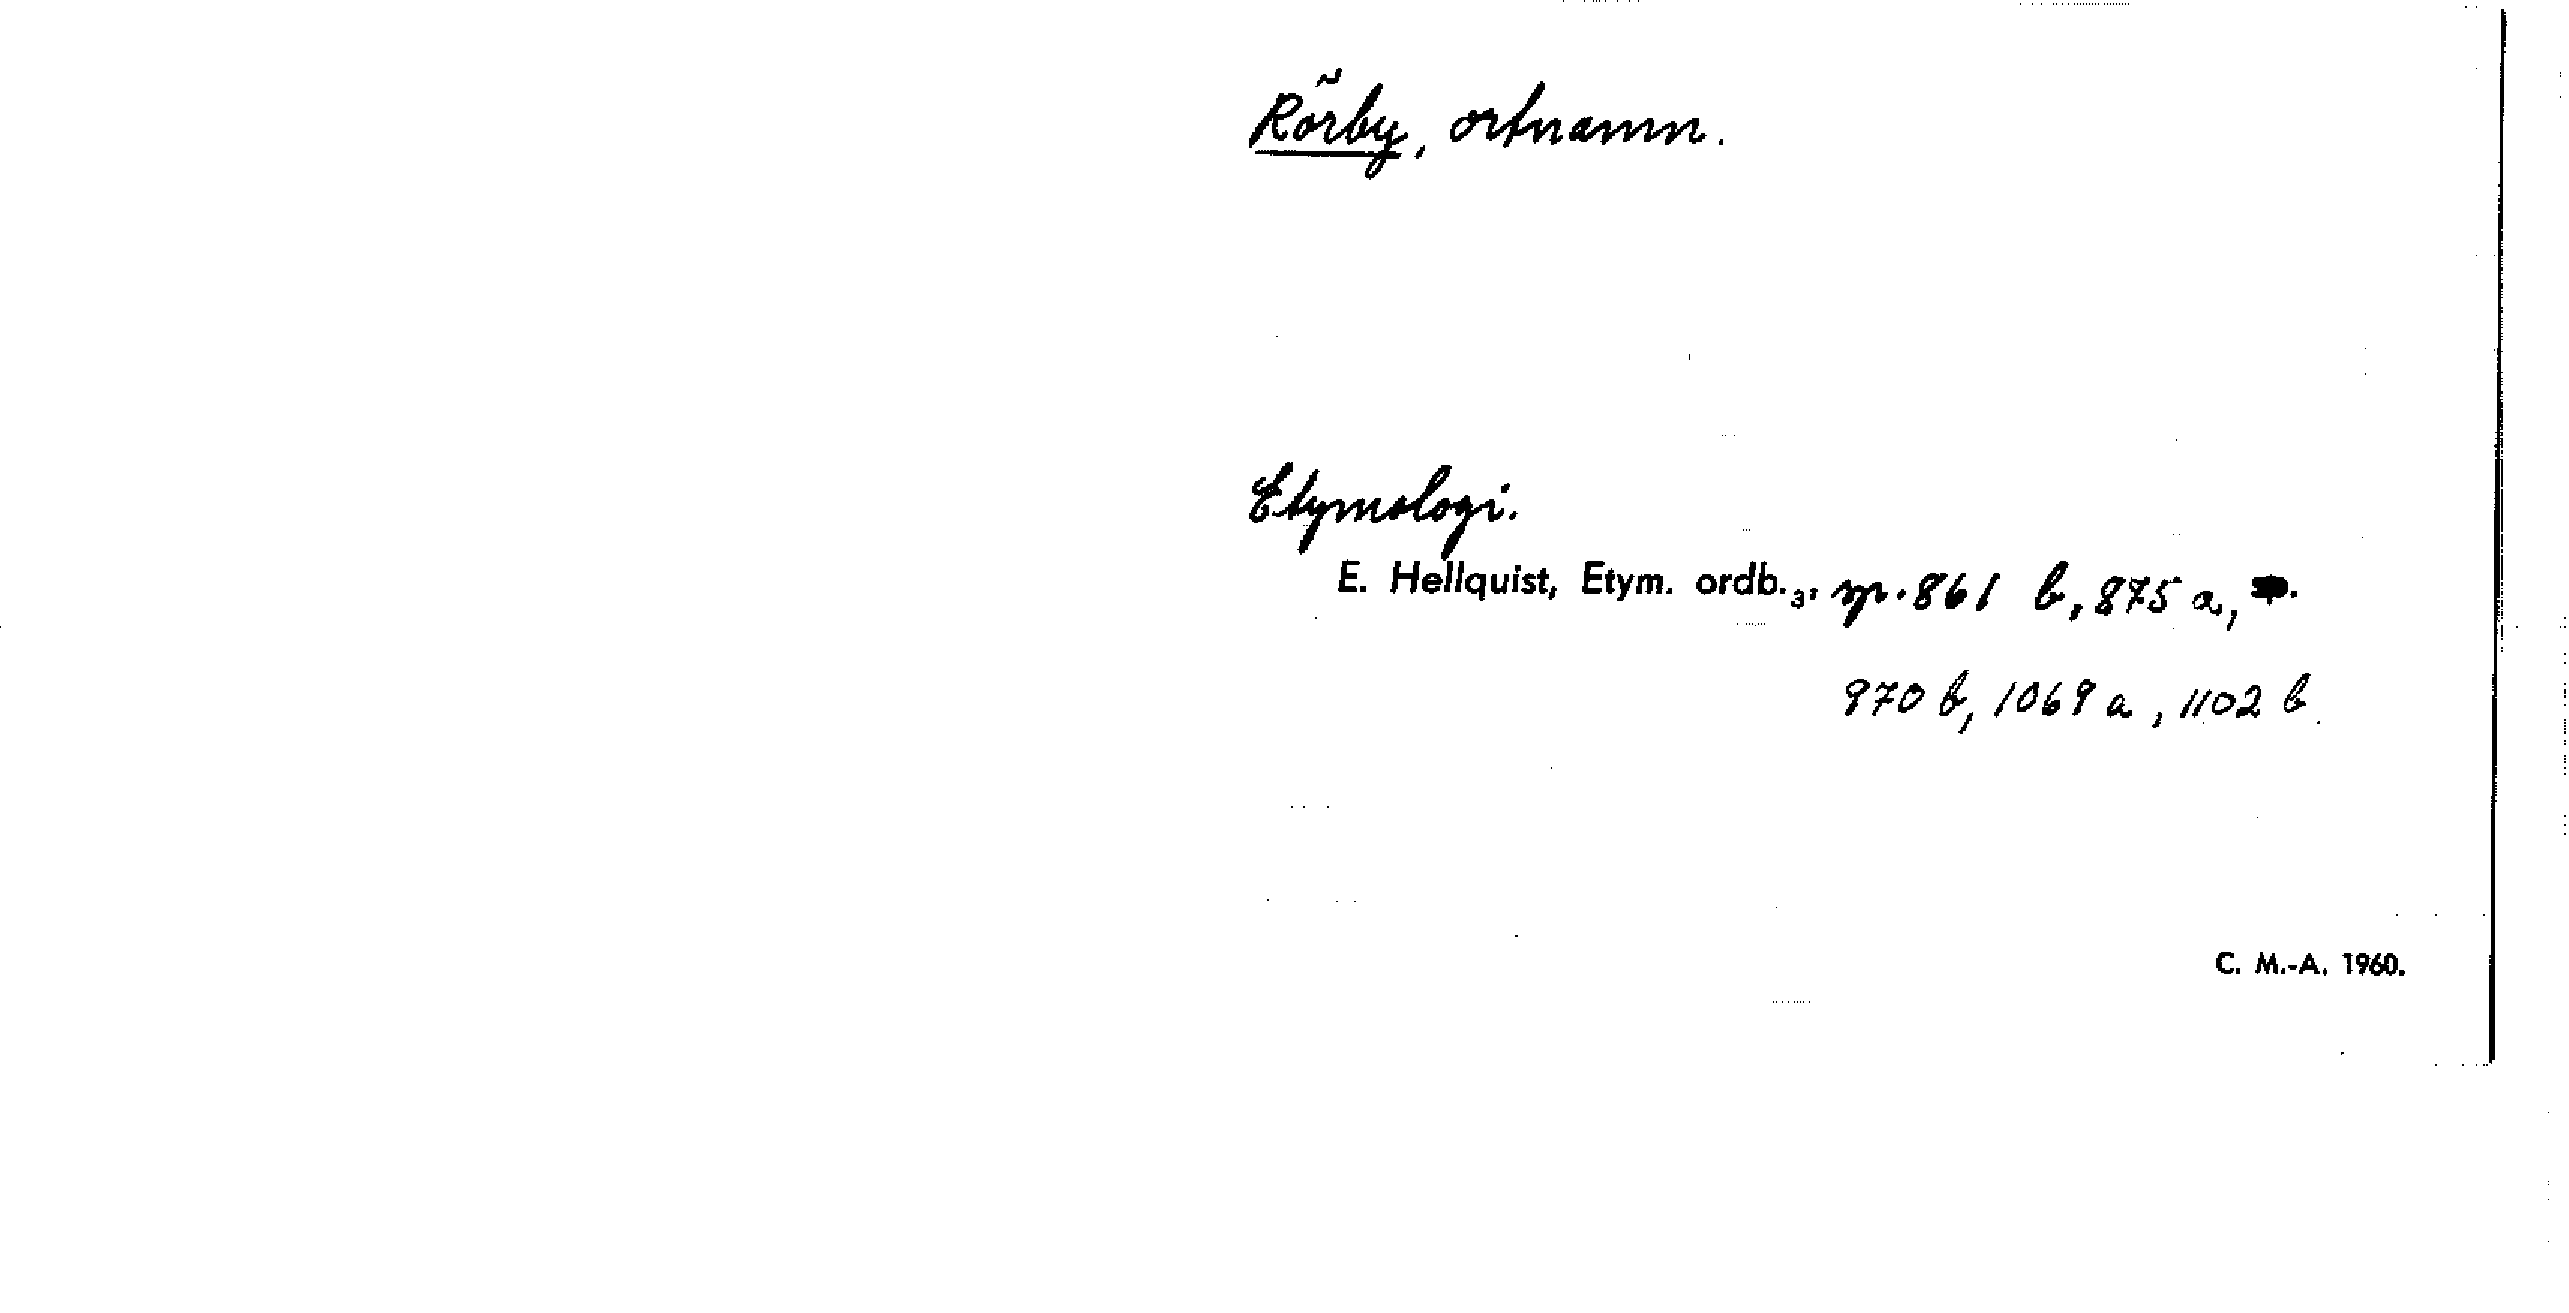 Rörby, ortnamn.
Etymologi.
E. Hellquist, Etym. ordb.₃, sp. 861 b, 875 a,
970 b, 1069 a, 1102 b.
C. M.-A. 1960.